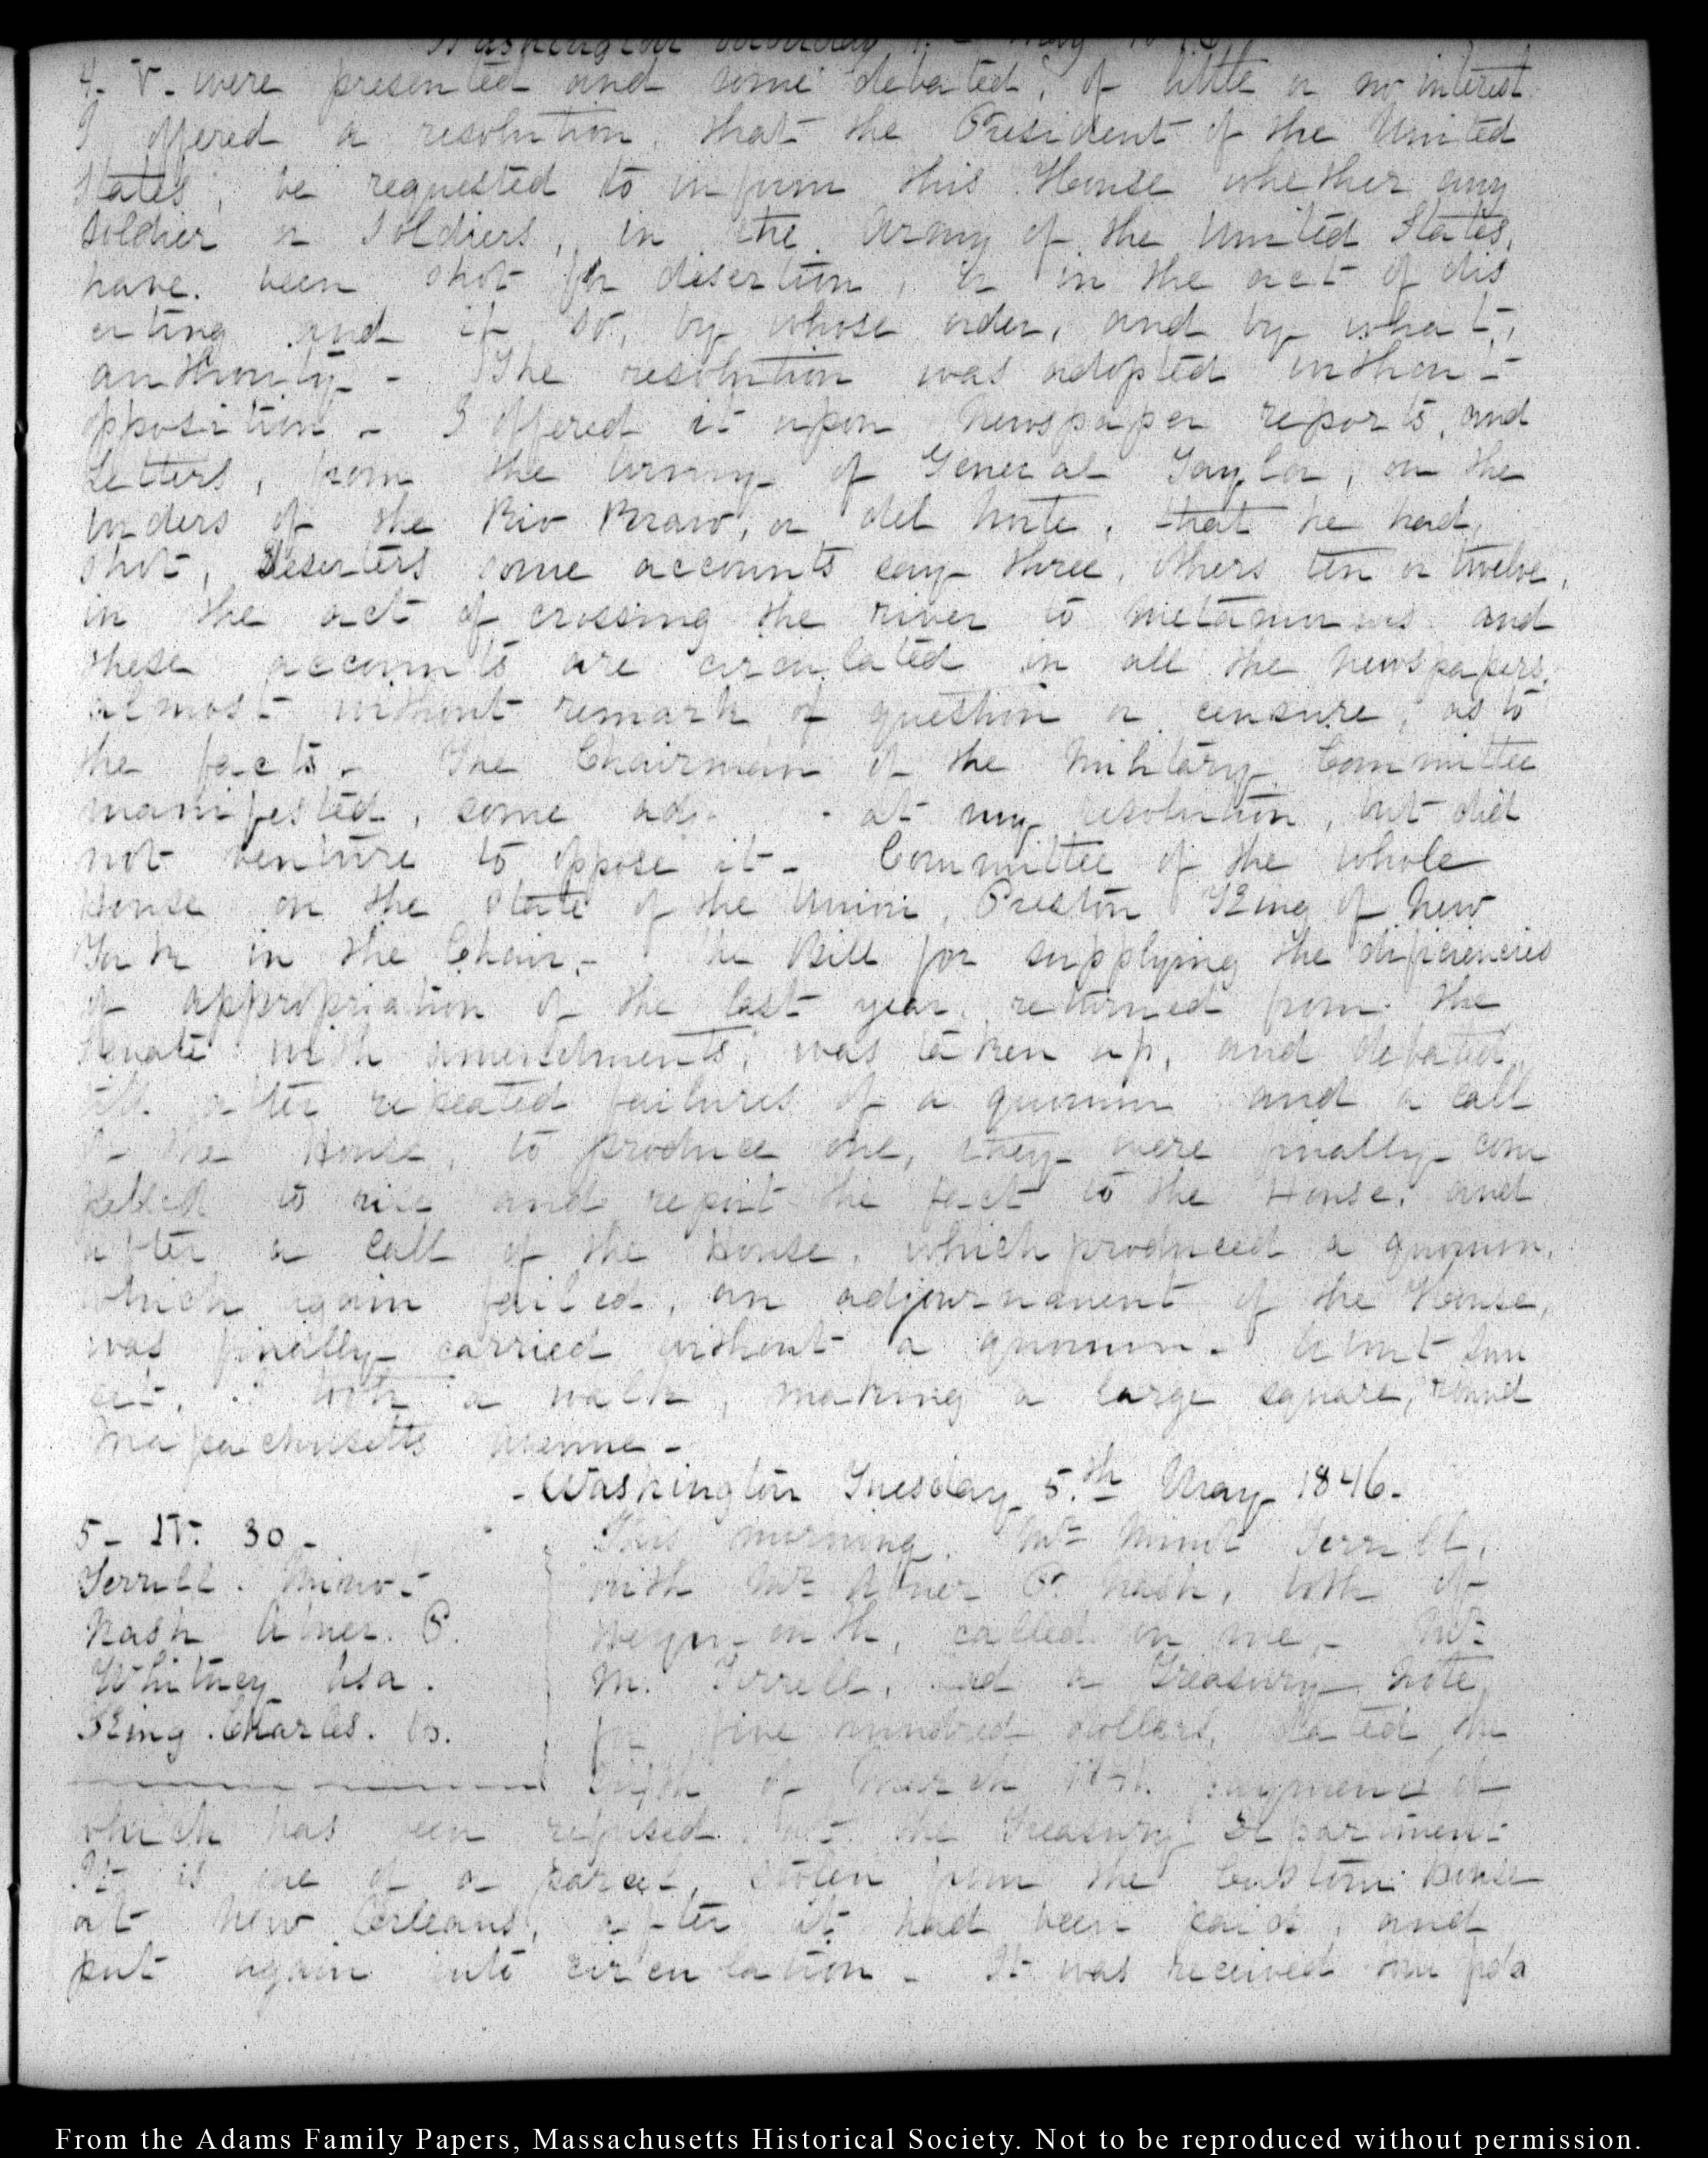 Washington Monday 4. May 1846
4. V. were presented and some debated, of little or no interest
I offered a resolution, that the President of the United
States, be requested to inform this House whether any
soldier or Soldiers, in the Army of the United States,
have been shot for disertion, or in the act of dis
erting and if so, by whose order, and by what,
authority - The resolution was adopted without
opposition - I offered it upon Newspaper reports, and
Letters, from the Army of General Taylor, on the
borders of the Rio Bravo, or del Norte, that he had,
shot, deserters some accounts say three, others ten or twelve,
in the act of crossing the river to Metamoras and
these accounts are circulated in all the newspapers,
almost without remark of question or censure, as to
the facts - The Chairman of the Military Committee
manifested, some at my resolution, but did
not venture to oppose it - Committee of the whole
House on the state of the Union, Preston King of New
York in the Chair - The Bill for supplying the dificiencies
of appropriation of the last year, returned from the
Senate with amendments, was taken up, and debated,
till after repeated failures of a quorum and a call
of the House, to produce one, they were finally com
pelled to rise and report the fact to the House, and
after a call of the House, which produced a quorum,
which again failed, an adjournment of the House,
was finally carried without a quorum - About Sun
set, I took a walk, making a large square, round
Massachusetts Avenue -
- Washington Tuesday 5.th May 1846 -
5 - IV. 30 -
Terrill. Minot
Nash Abner. P.
Whitney Asa.
King. Charles. B.
This morning, Mr Minot Terrill,
with Mr Abner P. Nash, both of
Weymouth, called on me, - Mr
M. Tirrell, had a Treasury Note,
for five hundred dollars, dated the
of March payment of
which has been refused at the Treasury Department
It is one of a parcel, stolen from the Custom House
at New Orleans, after it had been paid, and
put again into circulation - It was received bona fide